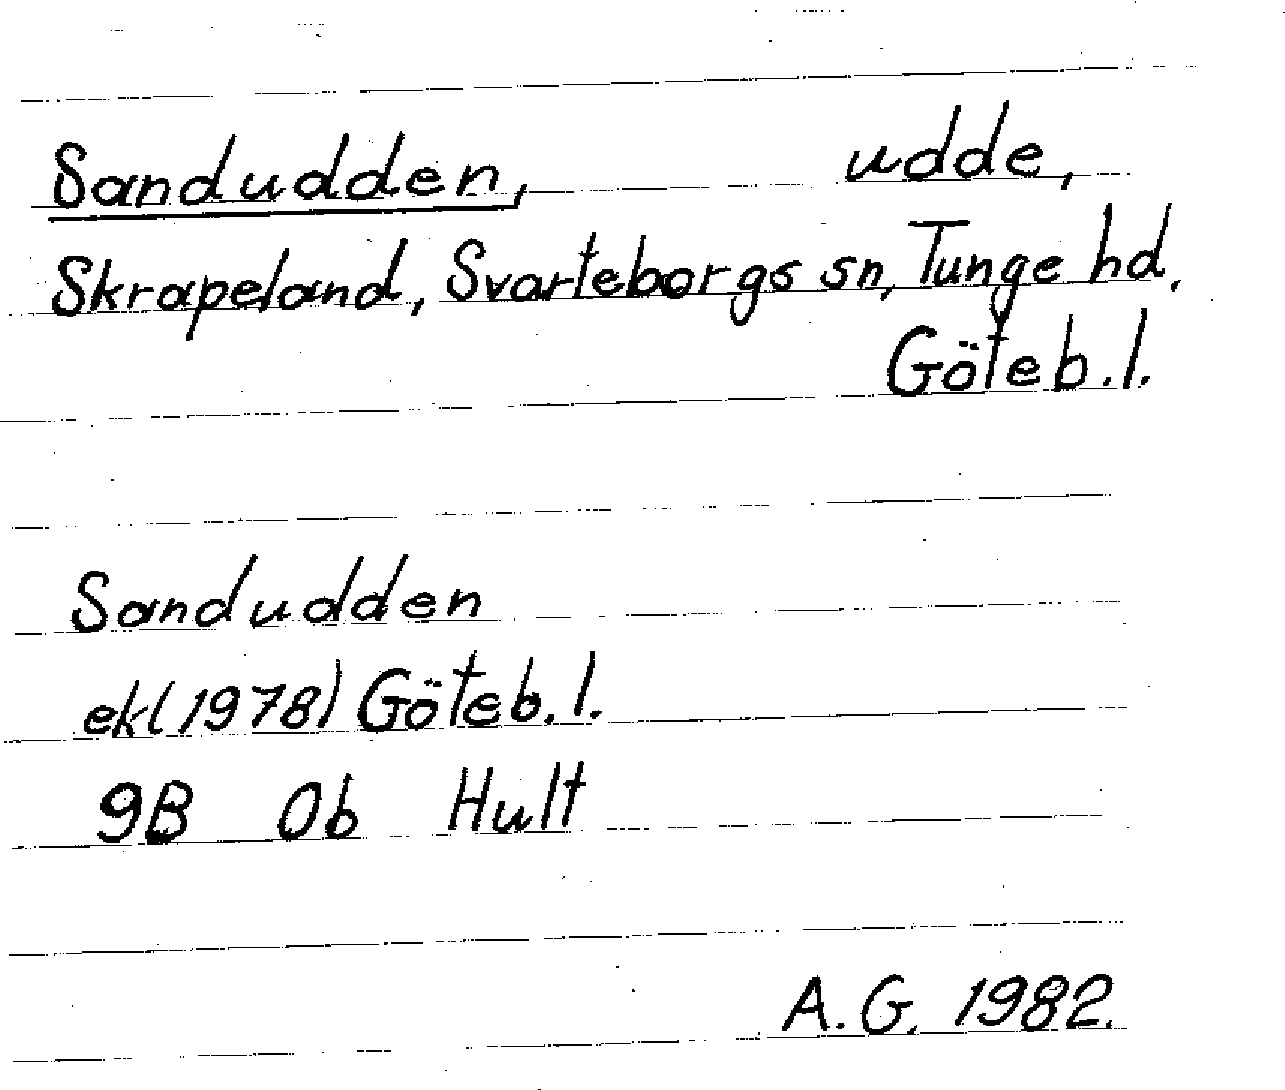 Sandudden, udde,
Skrapeland, Svarteborgs sn, Tunge hd,
Göteb. l.
Sandudden
ekl(1978) Göteb. l.
9B 0b Hult
A.G. 1982.